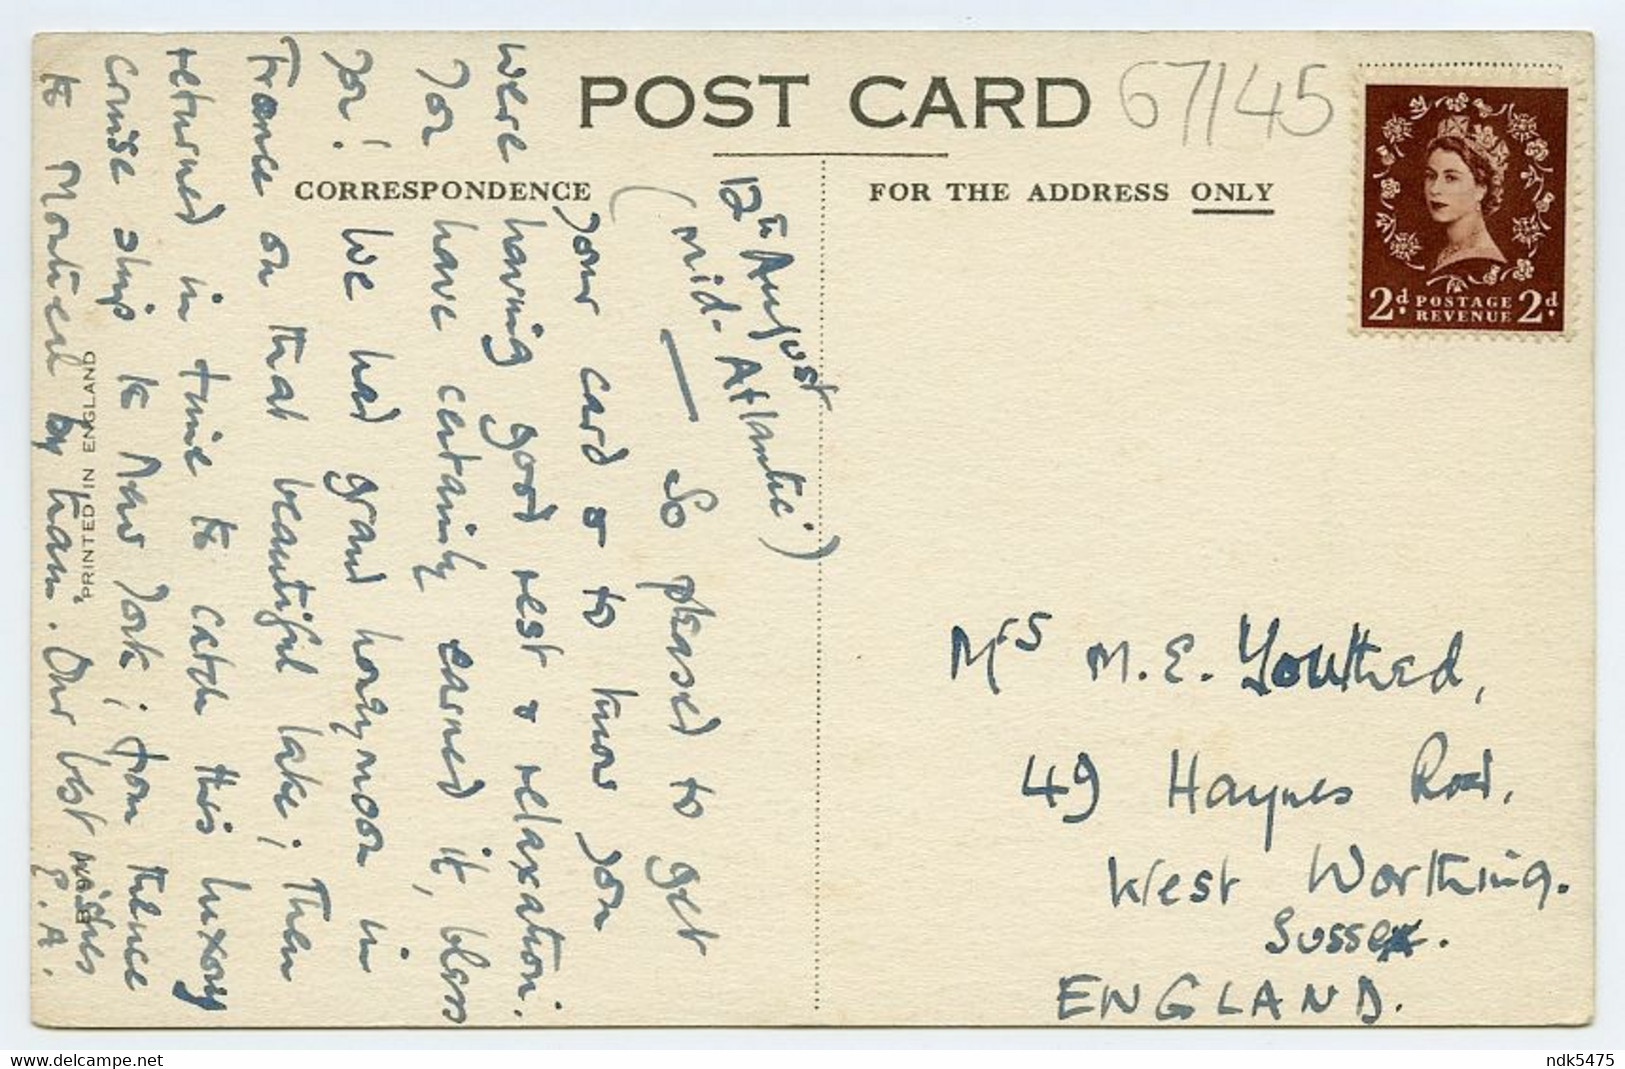 POST CARD
67/145
CORRESPONDENCE
FOR THE ADDRESS ONLY
2d POSTAGE 2d
REVENUE
12th August
(mid-Atlantic)
— So pleased to get
your card & to know you
were having good rest & relaxation.
You have certainly earned it, bless
you! We had grand honeymoon in
France on that beautiful lake; Then
returned in time to catch this luxury
cruise ship to New York; from thence
to Montreal by train. Our best wishes
P.A.
PRINTED IN ENGLAND
Mrs M.E. Youthed,
49 Haynes Road,
West Worthing.
Sussex.
ENGLAND.
ndk5475